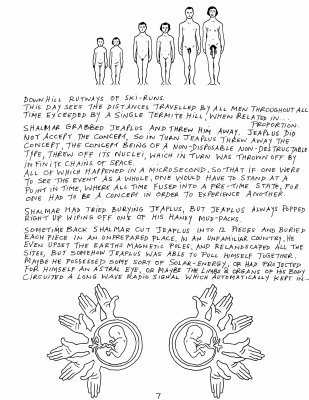 DOWNHILL RUTWAYS OF SKI-RUNS.
THIS DAY SEES THE DISTANCE, TRAVELLED BY ALL MEN THROUGHOUT ALL
TIME EXCEEDED BY A SINGLE TERMITE HILL, WHEN RELATED IN...
PROPORTION.
SHALMAR GRABBED JEAPLUS AND THREW HIM AWAY. JEAPLUS DID
NOT ACCEPT THE CONCEPT, SO IN TURN JEAPLUS THREW AWAY THE
CONCEPT, THE CONCEPT BEING OF A NON-DISPOSABLE NON-DESTRUCTABLE
TYPE, THREW OFF ITS NUCLEI, WHICH IN TURN WAS THROWN OFF BY
INFINITE CHAINS OF SPACE.
ALL OF WHICH HAPPENED IN A MICROSECOND, SO THAT IF ONE WERE
TO SEE THE EVENT AS A WHOLE, ONE WOULD HAVE TO STAND AT A
POINT IN TIME, WHERE ALL TIME FUSED INTO A PRE-TIME STATE, FOR
ONE HAD TO BE A CONCEPT IN ORDER TO EXPERIENCE ANOTHER.
SHALMAR HAD TRIED BURYING JEAPLUS, BUT JEAPLUS ALWAYS POPPED
RIGHT UP WIPING OFF ONE OF HIS HANDY MUD-PACKS.
SOMETIME BACK SHALMAR CUT JEAPLUS INTO 12 PIECES AND BURIED
EACH PIECE IN AN UNPREPARED PLACE, IN AN UNFAMILIAR COUNTRY, HE
EVEN UPSET THE EARTHS MAGNETIC POLES, AND RELANDSCAPED ALL THE
SITES, BUT SOMEHOW JEAPLUS WAS ABLE TO PULL HIMSELF TOGETHER.
MAYBE HE POSSESSED SOME SORT OF SOLAR-ENERGY, OR HAD PROJECTED
FOR HIMSELF AN ASTRAL EYE, OR MAYBE THE LIMBS & ORGANS OF HIS BODY
CIRCUITED A LONG WAVE RADIO SIGNAL WHICH AUTOMATICALLY KEPT IN--
7